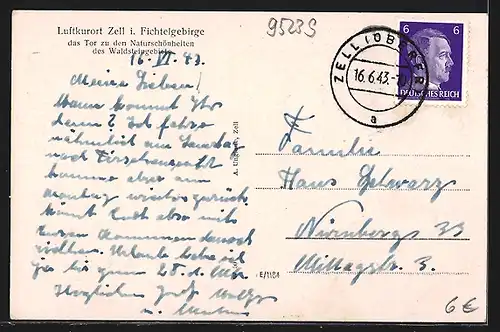 Luftkurort Zell i. Fichtelgebirge
das Tor zu den Naturschönheiten
des Waldsteingebietes
9523S
16. VI. 43.
Meine Lieben!
Wann kommt Ihr
denn? Ich fahre
nämlich am Samstag
nach Tirschenreuth
komme aber am
Montag wieder zurück.
Könnt Euch also mit
Euren Kommen danach
richten. Urlaub habe ich
bis zum 28. d. Mts.
Herzlichen Gruß
u.
A. Zell
E/1104
ZELL (OBERFR)
16.6.43
a
6 6
DEUTSCHES REICH
Familie
Hans Schwarz
Nürnberg S 33
Mittagstr. 3.
6€